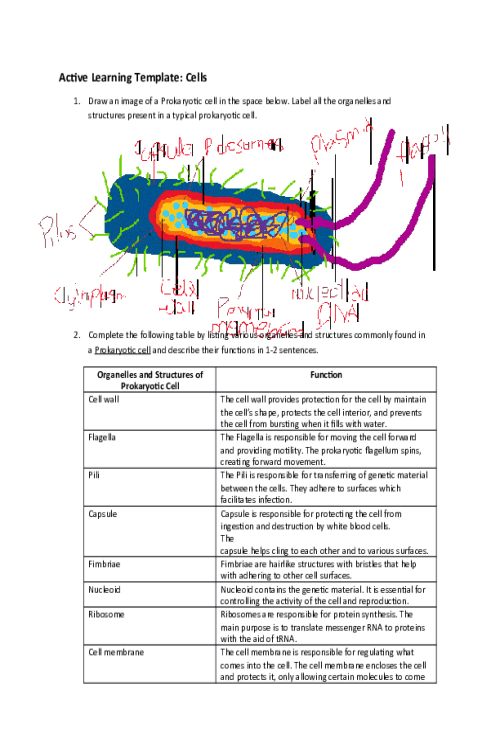 Active Learning Template: Cells
1. Draw an image of a Prokaryotic cell in the space below. Label all the organelles and
structures present in a typical prokaryotic cell.
plasmid
Pilus
Cell
wall
DNA
2. Complete the following table by listing various organelles and structures commonly found in
a Prokaryotic cell and describe their functions in 1-2 sentences.
Organelles and Structures of
Prokaryotic Cell
Function
Cell wall
The cell wall provides protection for the cell by maintain
the cell's shape, protects the cell interior, and prevents
the cell from bursting when it fills with water.
Flagella
The Flagella is responsible for moving the cell forward
and providing motility. The prokaryotic flagellum spins,
creating forward movement.
Pili
The Pili is responsible for transferring of genetic material
between the cells. They adhere to surfaces which
facilitates infection.
Capsule
Capsule is responsible for protecting the cell from
ingestion and destruction by white blood cells.
The
capsule helps cling to each other and to various surfaces.
Fimbriae
Fimbriae are hairlike structures with bristles that help
with adhering to other cell surfaces.
Nucleoid
Nucleoid contains the genetic material. It is essential for
controlling the activity of the cell and reproduction.
Ribosome
Ribosomes are responsible for protein synthesis. The
main purpose is to translate messenger RNA to proteins
with the aid of tRNA.
Cell membrane
The cell membrane is responsible for regulating what
comes into the cell. The cell membrane encloses the cell
and protects it, only allowing certain molecules to come